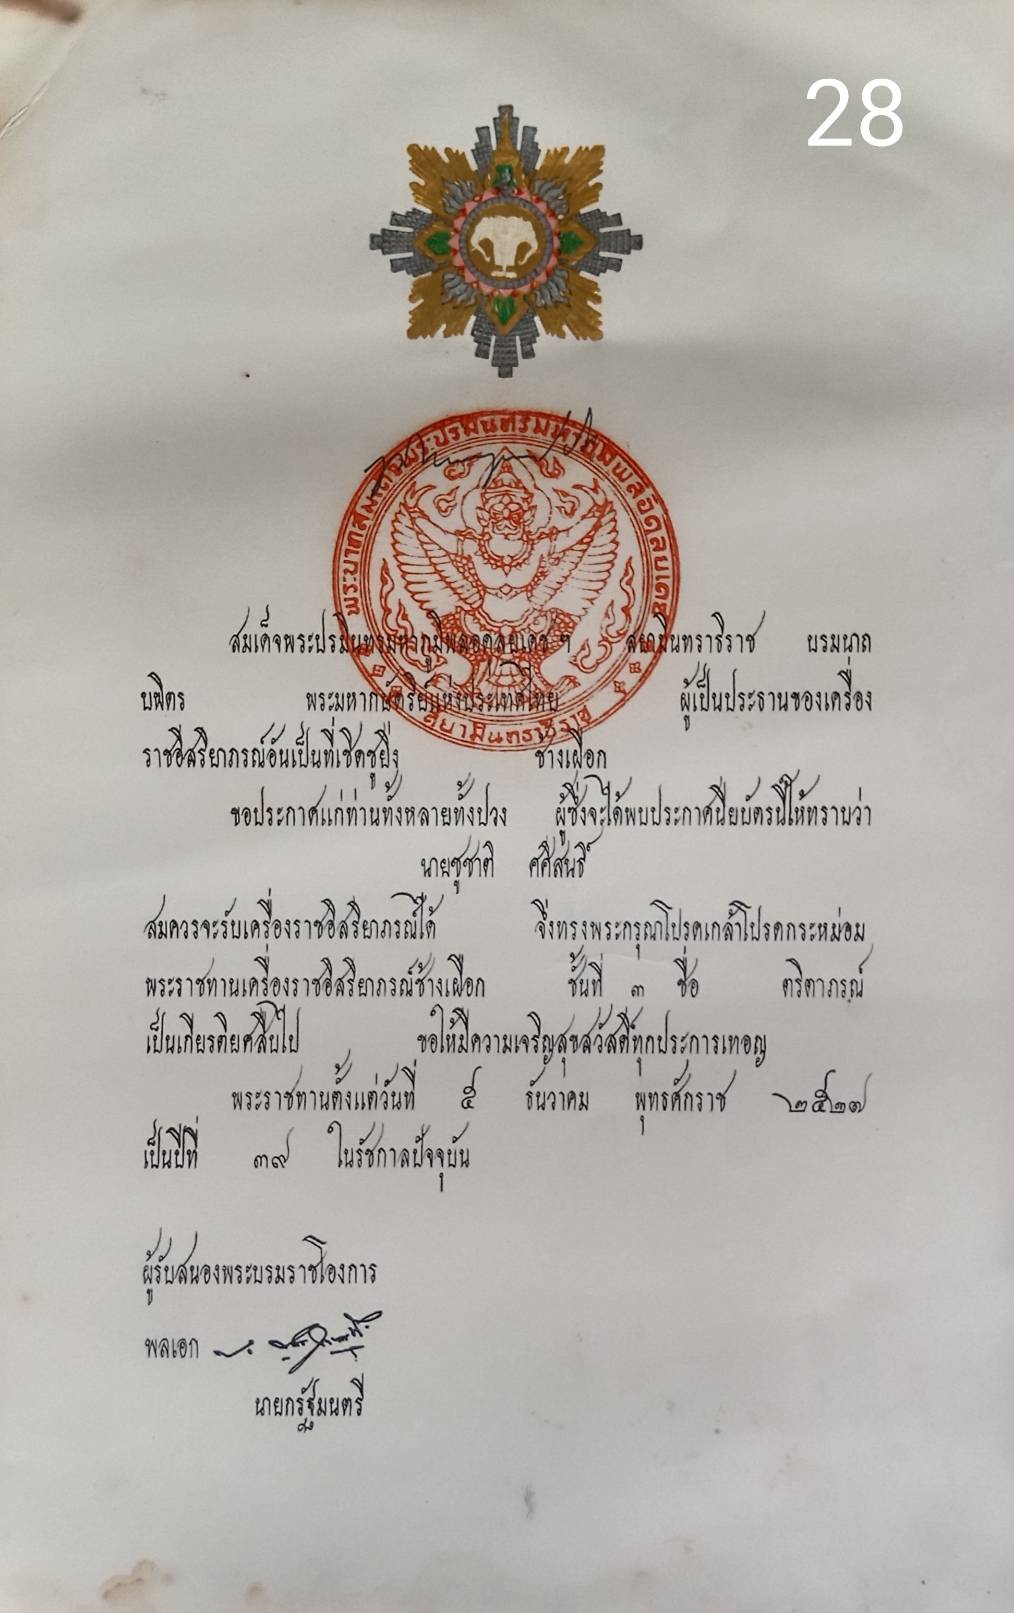 28
พระบาทสมเด็จพระปรมินทรมหาภูมิพลอดุลยเดช
สยามินทราธิราช
สมเด็จพระปรมินทรมหาภูมิพลอดุลยเดช ฯ สยามินทราธิราช บรมนาถ
บพิตร พระมหากษัตริย์แห่งประเทศไทย ผู้เป็นประธานของเครื่อง
ราชอิสริยาภรณ์อันเป็นที่เชิดชูยิ่ง ช้างเผือก
ขอประกาศแก่ท่านทั้งหลายทั้งปวง ผู้ซึ่งจะได้พบประกาศนียบัตรนี้ให้ทราบว่า
นายชูชาติ ศศิสนธิ์
สมควรจะรับเครื่องราชอิสริยาภรณ์ได้ จึ่งทรงพระกรุณาโปรดเกล้าโปรดกระหม่อม
พระราชทานเครื่องราชอิสริยาภรณ์ช้างเผือก ชั้นที่ ๓ ชื่อ ตริตาภรณ์
เป็นเกียรติยศสืบไป ขอให้มีความเจริญสุขสวัสดิ์ทุกประการเทอญ
พระราชทานตั้งแต่วันที่ ๕ ธันวาคม พุทธศักราช ๒๕๒๗
เป็นปีที่ ๓๙ ในรัชกาลปัจจุบัน
ผู้รับสนองพระบรมราชโองการ
พลเอก ป.
นายกรัฐมนตรี